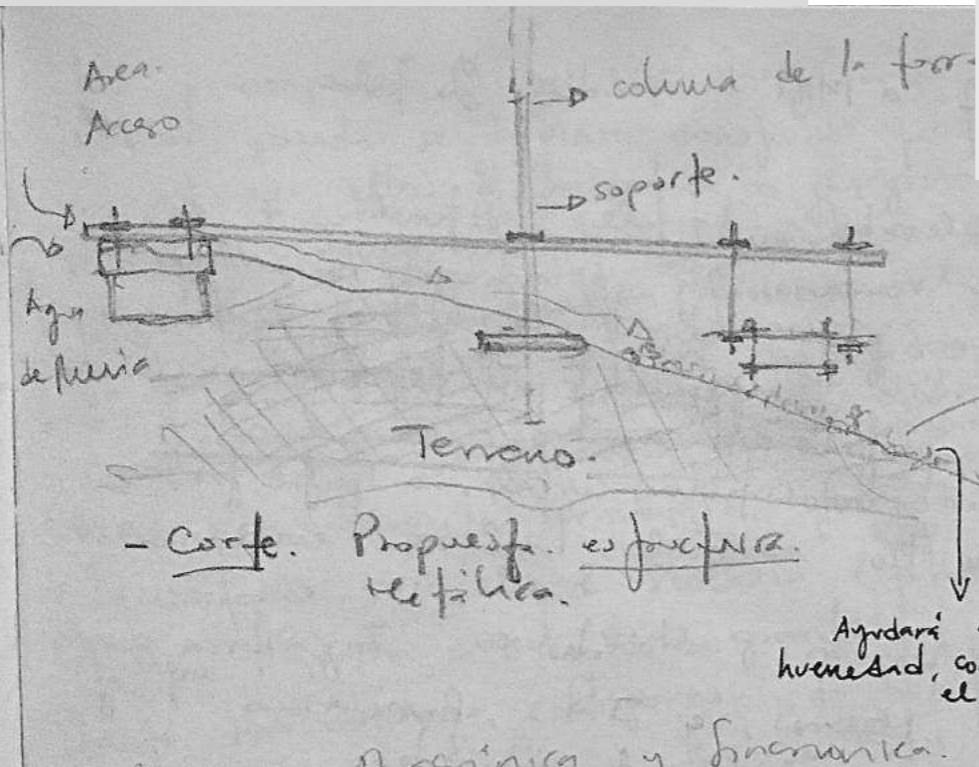 Area.
Acceso
columna de la
soporte.
Agua
de lluvia
Terreno.
- Corte. Propuesta. estructura.
Metálica.
Ayudará
huemedad, co
el
y